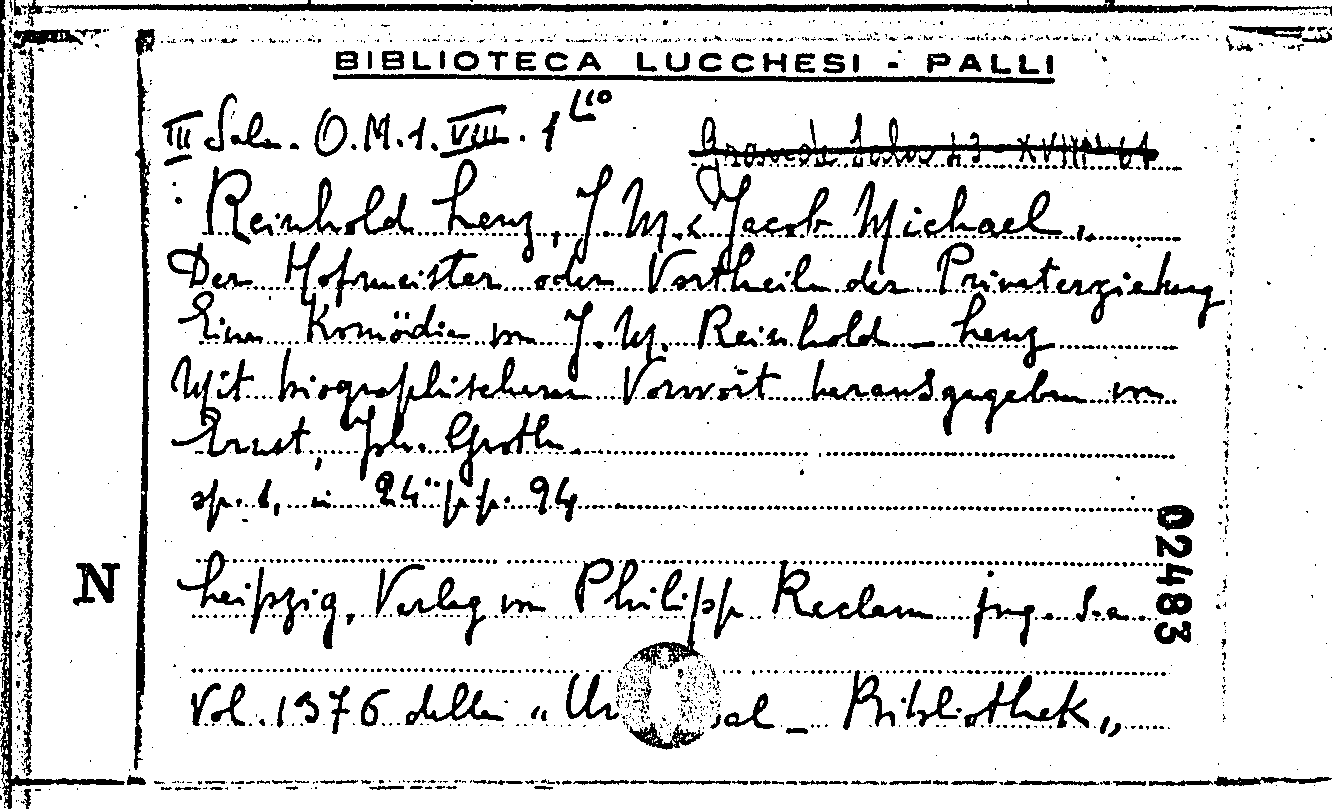 BIBLIOTECA LUCCHESI - PALLI
III Sala. O.M.1.VIII. 1 L10
Grande Sala 23-XVIII 61
Reinhold Lenz, J. M. < Jacob Michael „
Der Hofmeister oder Vortheile der Privaterziehung
Eine Komödie von J. M. Reinhold - Lenz
Mit biographischem Vorwort herausgegeben von
Ernst, Joh. Groth.
sp. 1, in 24° pp. 94
N
02483
Leipzig, Verlag von Philipp Reclam jug. s.a.
Vol. 1376 della „ Un al - Bibliothek „